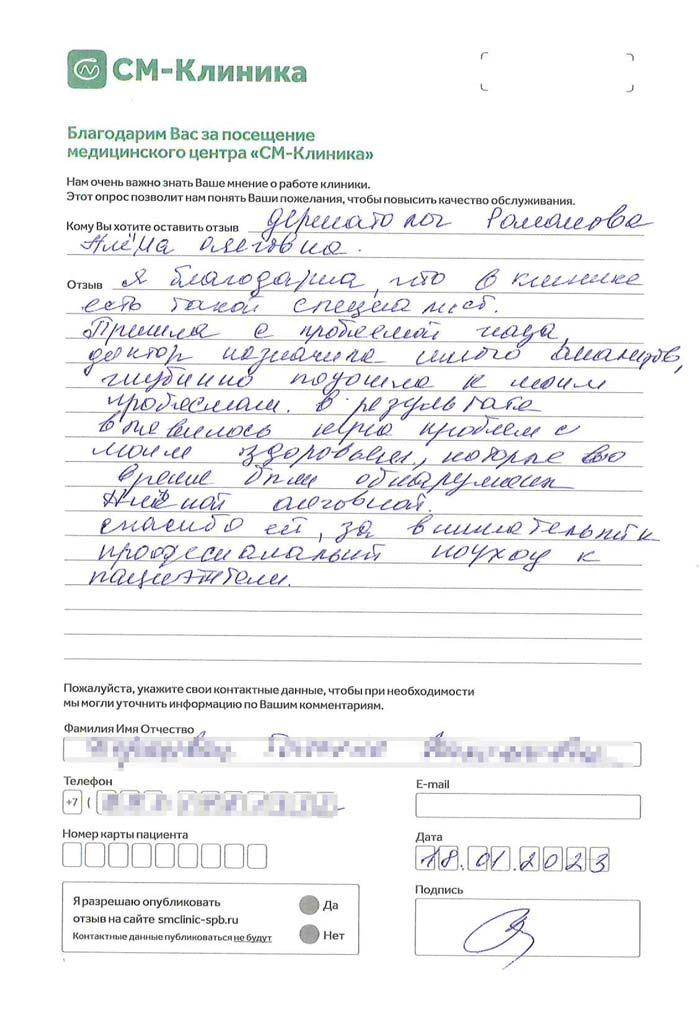 СМ-Клиника
Благодарим Вас за посещение
медицинского центра «СМ-Клиника»
Нам очень важно знать Ваше мнение о работе клиники.
Этот опрос позволит нам понять Ваши пожелания, чтобы повысить качество обслуживания.
Кому Вы хотите оставить отзыв дерматолог Романова
Алёна Олеговна.
Отзыв Я благодарна, что в клинике
есть такой специалист.
Пришла с проблемой лица,
доктор назначила много анализов,
глубинно подошла к моим
проблемам. В результате
выявилось куча проблем с
моим здоровьем, которые во
время были обнаружены
Алёной Олеговной.
Спасибо ей, за внимательный и
професиональный подход к
пациентам.
Пожалуйста, укажите свои контактные данные, чтобы при необходимости
мы могли уточнить информацию по Вашим комментариям.
Фамилия Имя Отчество
Телефон
E-mail
+7 (
Номер карты пациента
Дата
18.01.2023
Я разрешаю опубликовать
отзыв на сайте smclinic-spb.ru
Контактные данные публиковаться не будут
Да
Нет
Подпись